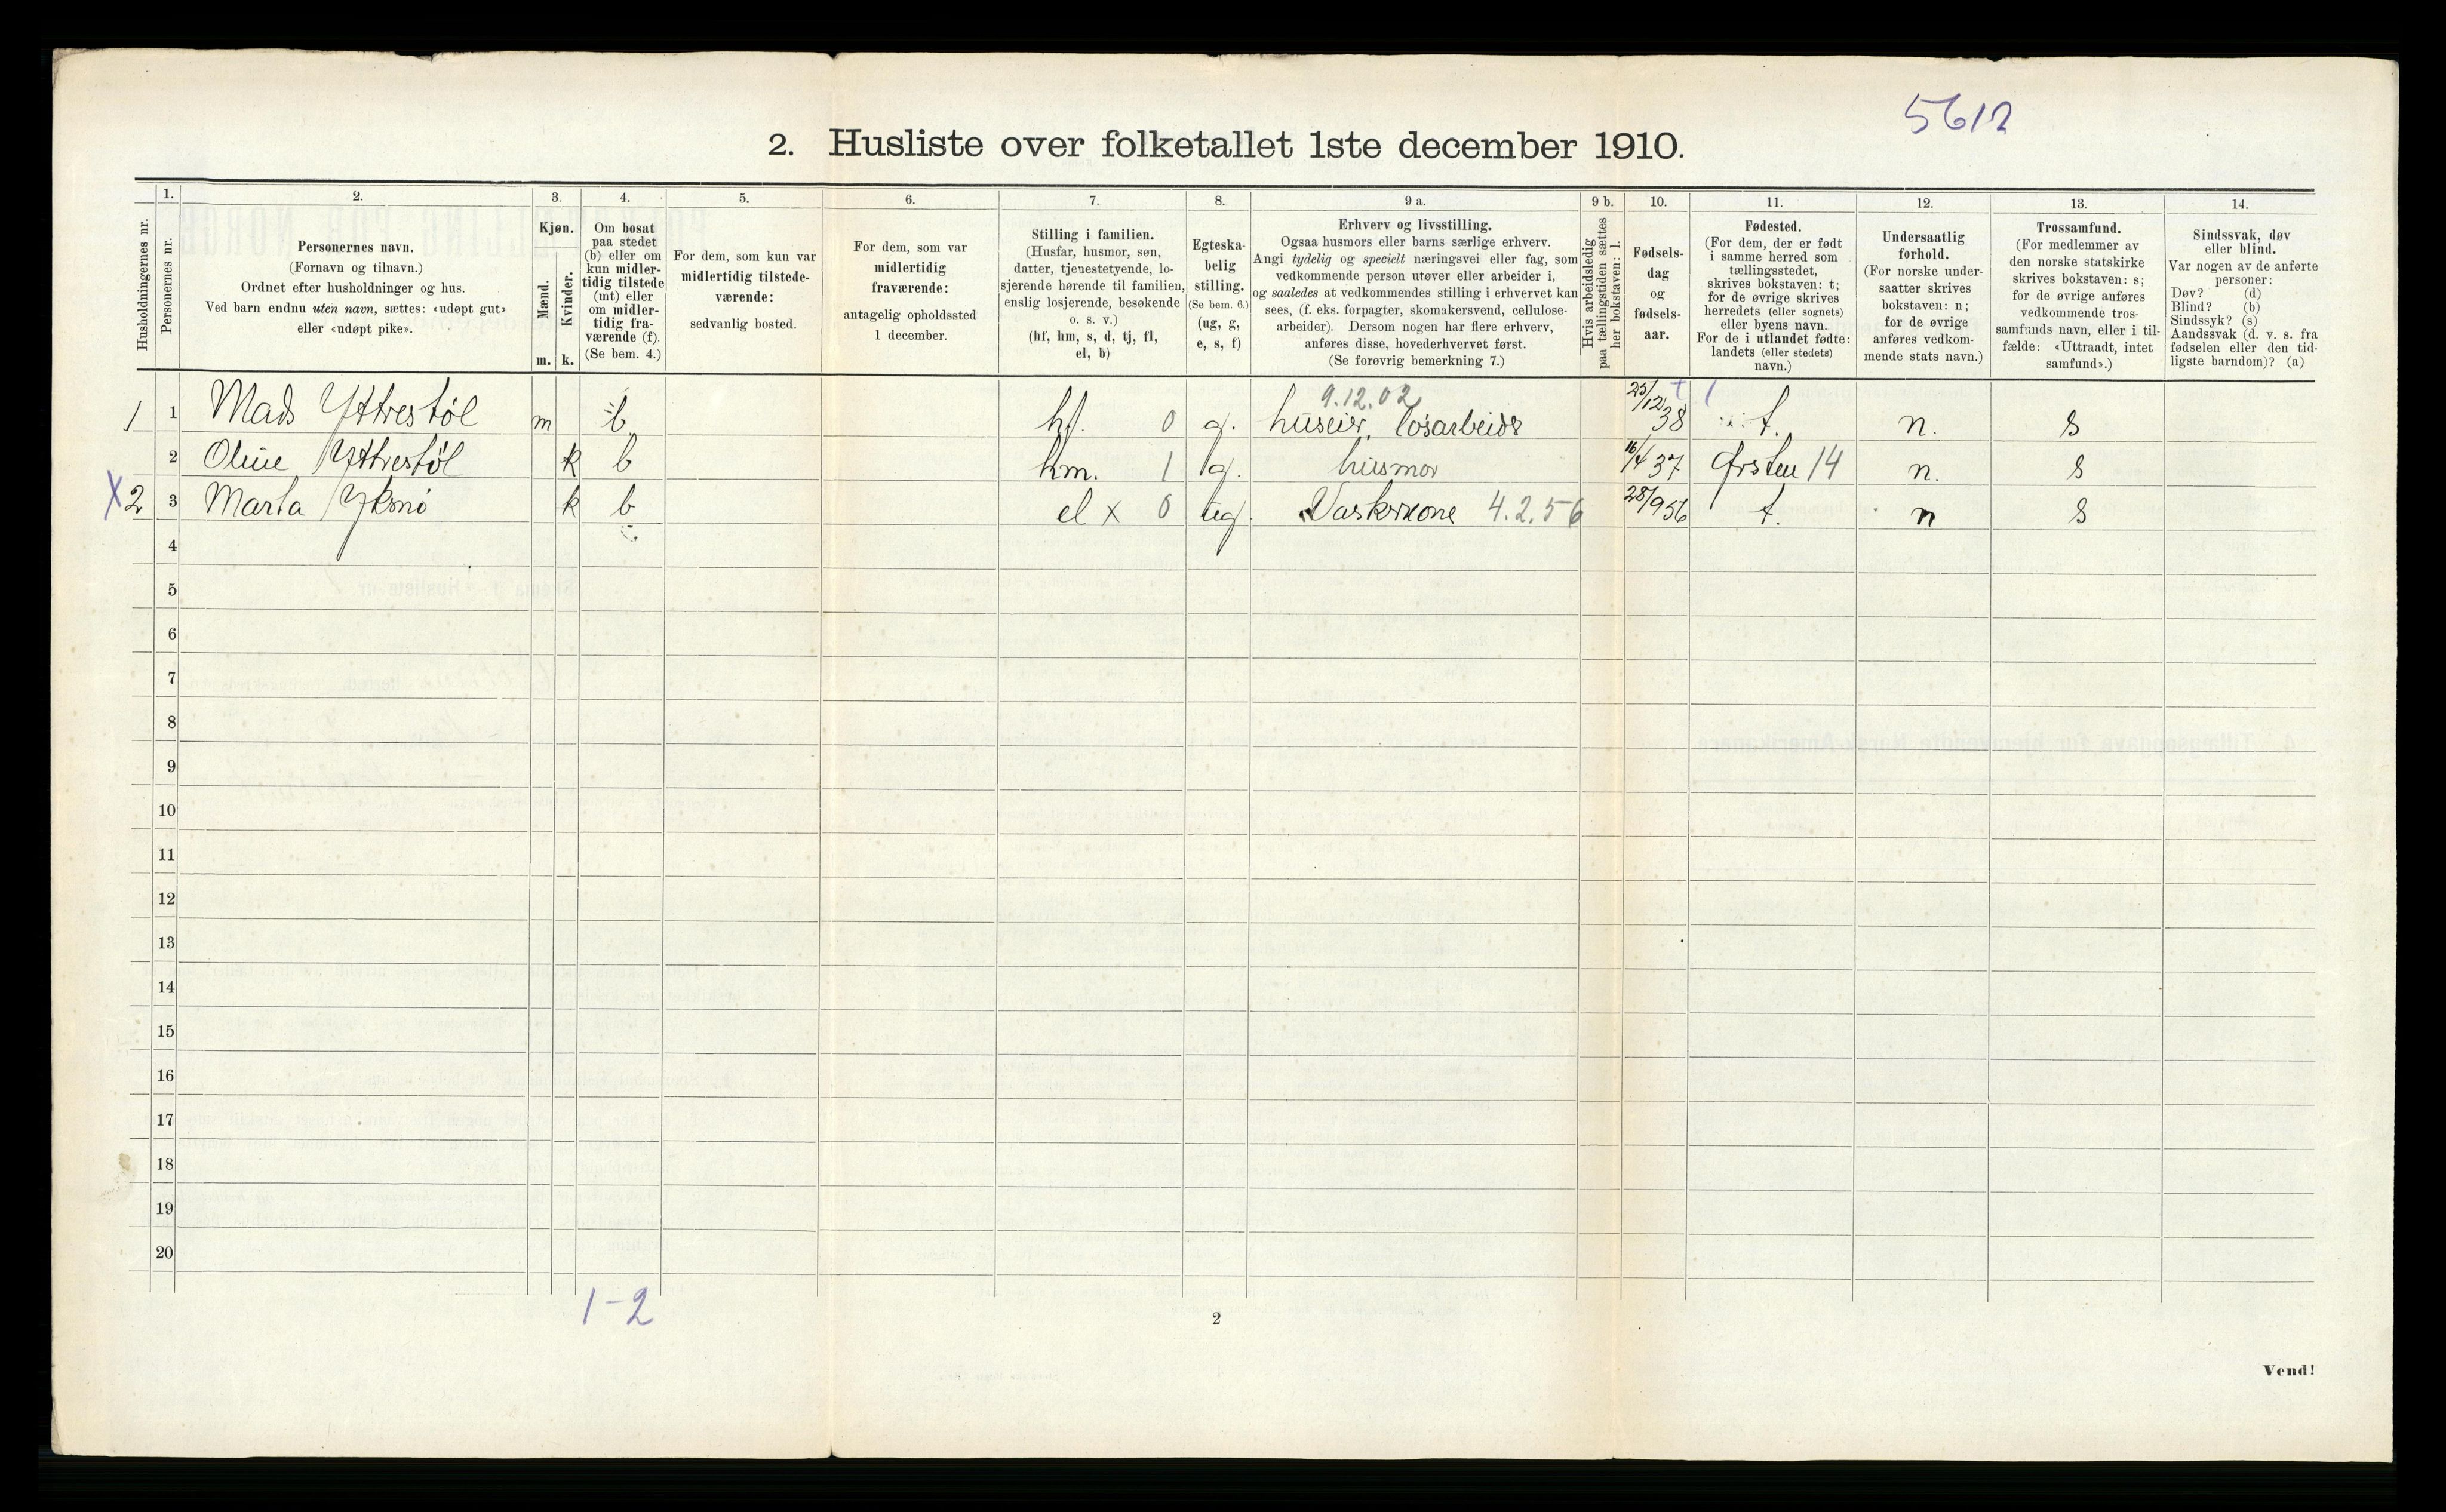 5612
2. Husliste over folketallet 1ste december 1910.
Husholdningernes nr.
1.
Personernes nr.
2.
Personernes navn.
(Fornavn og tilnavn.)
Ordnet efter husholdninger og hus.
Ved barn endnu uten navn, sættes: «udøpt gut»
eller «udøpt pike».
3.
Kjøn.
Mænd.
Kvinder.
m. k.
4.
Om bosat
paa stedet
(b) eller om
kun midler-
tidig tilstede
(mt) eller
om midler-
tidig fra-
værende (f).
(Se bem. 4.)
5.
For dem, som kun var
midlertidig tilstede-
værende:
sedvanlig bosted.
6.
For dem, som var
midlertidig
fraværende:
antagelig opholdssted
1 december.
7.
Stilling i familien.
(Husfar, husmor, søn,
datter, tjenestetyende, lo-
sjerende hørende til familien,
enslig losjerende, besøkende
o. s. v.)
(hf, hm, s, d, tj, fl,
el, b)
8.
Egteska-
belig
stilling.
(Se bem. 6.)
(ug, g,
e, s, f)
9 a.
Erhverv og livsstilling.
Ogsaa husmors eller barns særlige erhverv.
Angi tydelig og specielt næringsvei eller fag, som
vedkommende person utøver eller arbeider i,
og saaledes at vedkommendes stilling i erhvervet kan
sees, (f. eks. forpagter, skomakersvend, cellulose-
arbeider). Dersom nogen har flere erhverv,
anføres disse, hovederhvervet først.
(Se forøvrig bemerkning 7.)
9 b.
Hvis arbeidsledig
paa tællingstiden sættes
her bokstaven: l.
10.
Fødsels-
dag
og
fødsels-
aar.
11.
Fødested.
(For dem, der er født
i samme herred som
tællingsstedet,
skrives bokstaven: t;
for de øvrige skrives
herredets (eller sognets)
eller byens navn.
For de i utlandet fødte:
landets (eller stedets)
navn.)
12.
Undersaatlig
forhold.
(For norske under-
saatter skrives
bokstaven: n;
for de øvrige
anføres vedkom-
mende stats navn.)
13.
Trossamfund.
(For medlemmer av
den norske statskirke
skrives bokstaven: s;
for de øvrige anføres
vedkommende tros-
samfunds navn, eller i til-
fælde: «Uttraadt, intet
samfund».)
14.
Sindssvak, døv
eller blind.
Var nogen av de anførte
personer:
Døv? (d)
Blind? (b)
Sindssyk? (s)
Aandssvak (d. v. s. fra
fødselen eller den tid-
ligste barndom)? (a)
9.12.02
1 1 Mads Yttrestøl m b hf. 0 g. huseier, løsarbeider 25/12 38 t. n. s
2 Oline Yttrestøl k b hm. 1 g. husmor 16/4 37 Ørsten 14 n. s
X2 3 Marta k b el x 0 ug. Vaskekone 4.2.56 28/9 56 t. n s
4
5
6
7
8
9
10
11
12
13
14
15
16
17
18
19
20
1-2
2
Vend!